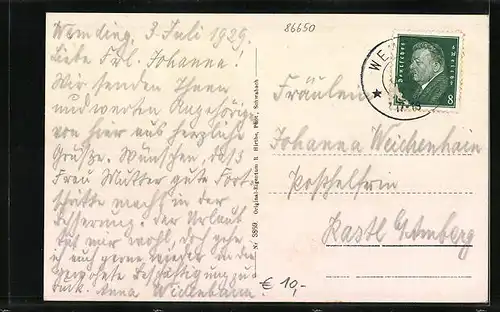 Wemding, 3. Juli 1929.
Liebe Frl. Johanna!
Wir senden Ihnen
und werten Angehörigen
von hier aus herzliche
Grüße. Wünschen, daß
Frau Mutter gute Fort-
schritte macht in der
Besserung. Der Urlaub
tut mir wohl, doch gehe
ich auch gerne wieder in die
gewohnte Beschäftigung zu-
rück. Anna
86650
Nr 3880 Original-Eigentum B. Hirthe, Phot., Schwabach
WEM
Deutsches Reich
8
Fräulein
Johanna Weichenhain
Posthelferin
Kastl b/ Amberg
€ 10,-